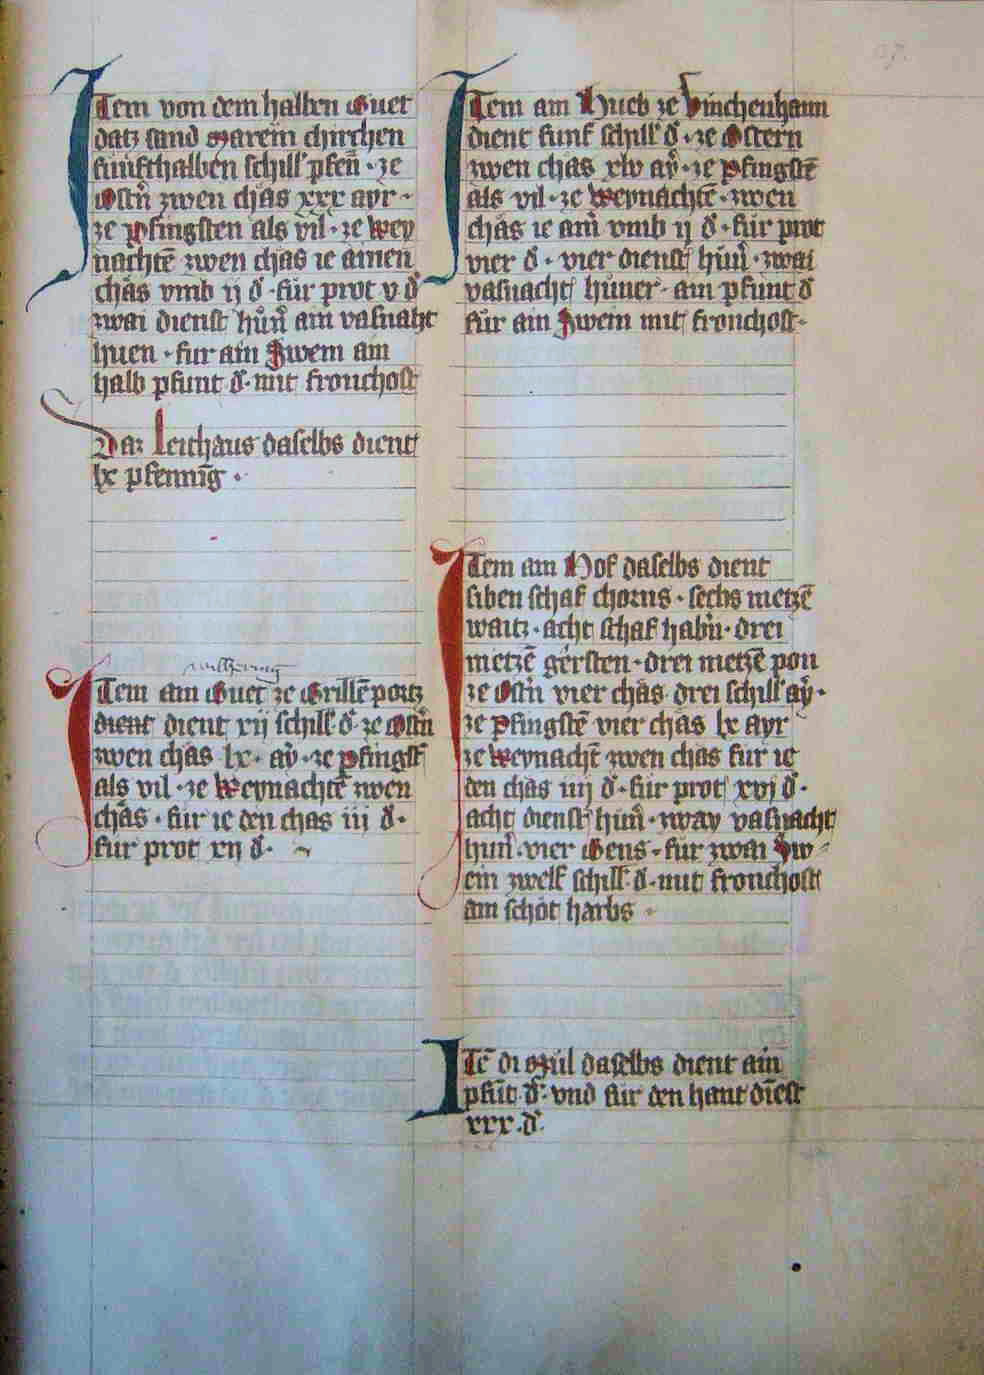 Item von dem halben Guet
datz sand Marein chirchen
fumfthalben schill pfeñ · ze
Ostñ zwen chäs xxx ayr ·
ze Pfingsten als vil · ze Wey
nachtē zwen chäs ie ainen
chäs vmb ij đ · für prot v đ
zwai dienst hůñ ain vasnaht
huen · fur ain Swein ain
halb pfunt đ · mit fronchost
Daz Leithaus daselbs dient
lx pfenning ·
Item am Guet ze Grillēportz
dient dient xij schill đ ze Ostñ
zwen chäs lx · aÿ · ze Pfingst
als vil · ze Weynachtē zwen
chäs · für ie den chäs iii đ ·
fur prot xij đ ·
Item am Hueb ze Vinchenhaim
dient funf schill đ · ze Ostern
zwen chäs xlv aÿ · ze Pfingstē
als vil · ze Weynachtē · zwen
chäs ie ain vmb ij đ · für prot
vier đ · vier dienst hůñ · zwai
vasnacht hůner · ain pfunt đ
für ain Swein mit fronchost ·
Item am Hof daselbs dient
siben schaf chorns · sechs metzē
waitz · acht schaf habñ · drei
metzē gersten · drei metzē pon
ze Ostñ vier chäs drei schill aÿ ·
ze Pfingstē vier chäs lx ayr
ze Weynachtē zwen chäs fur ie
den chäs iiij đ · für prot xvj đ ·
acht dienst hůñ · zway vasnacht
hůñ · vier Gens · für zwai Sw
ein zwelf schill đ · mit fronchost
ain schöt harbs
Itē di Mül daselbs dient ain
pfūt · đ · vnd für den hant diēst
xxx · đ ·